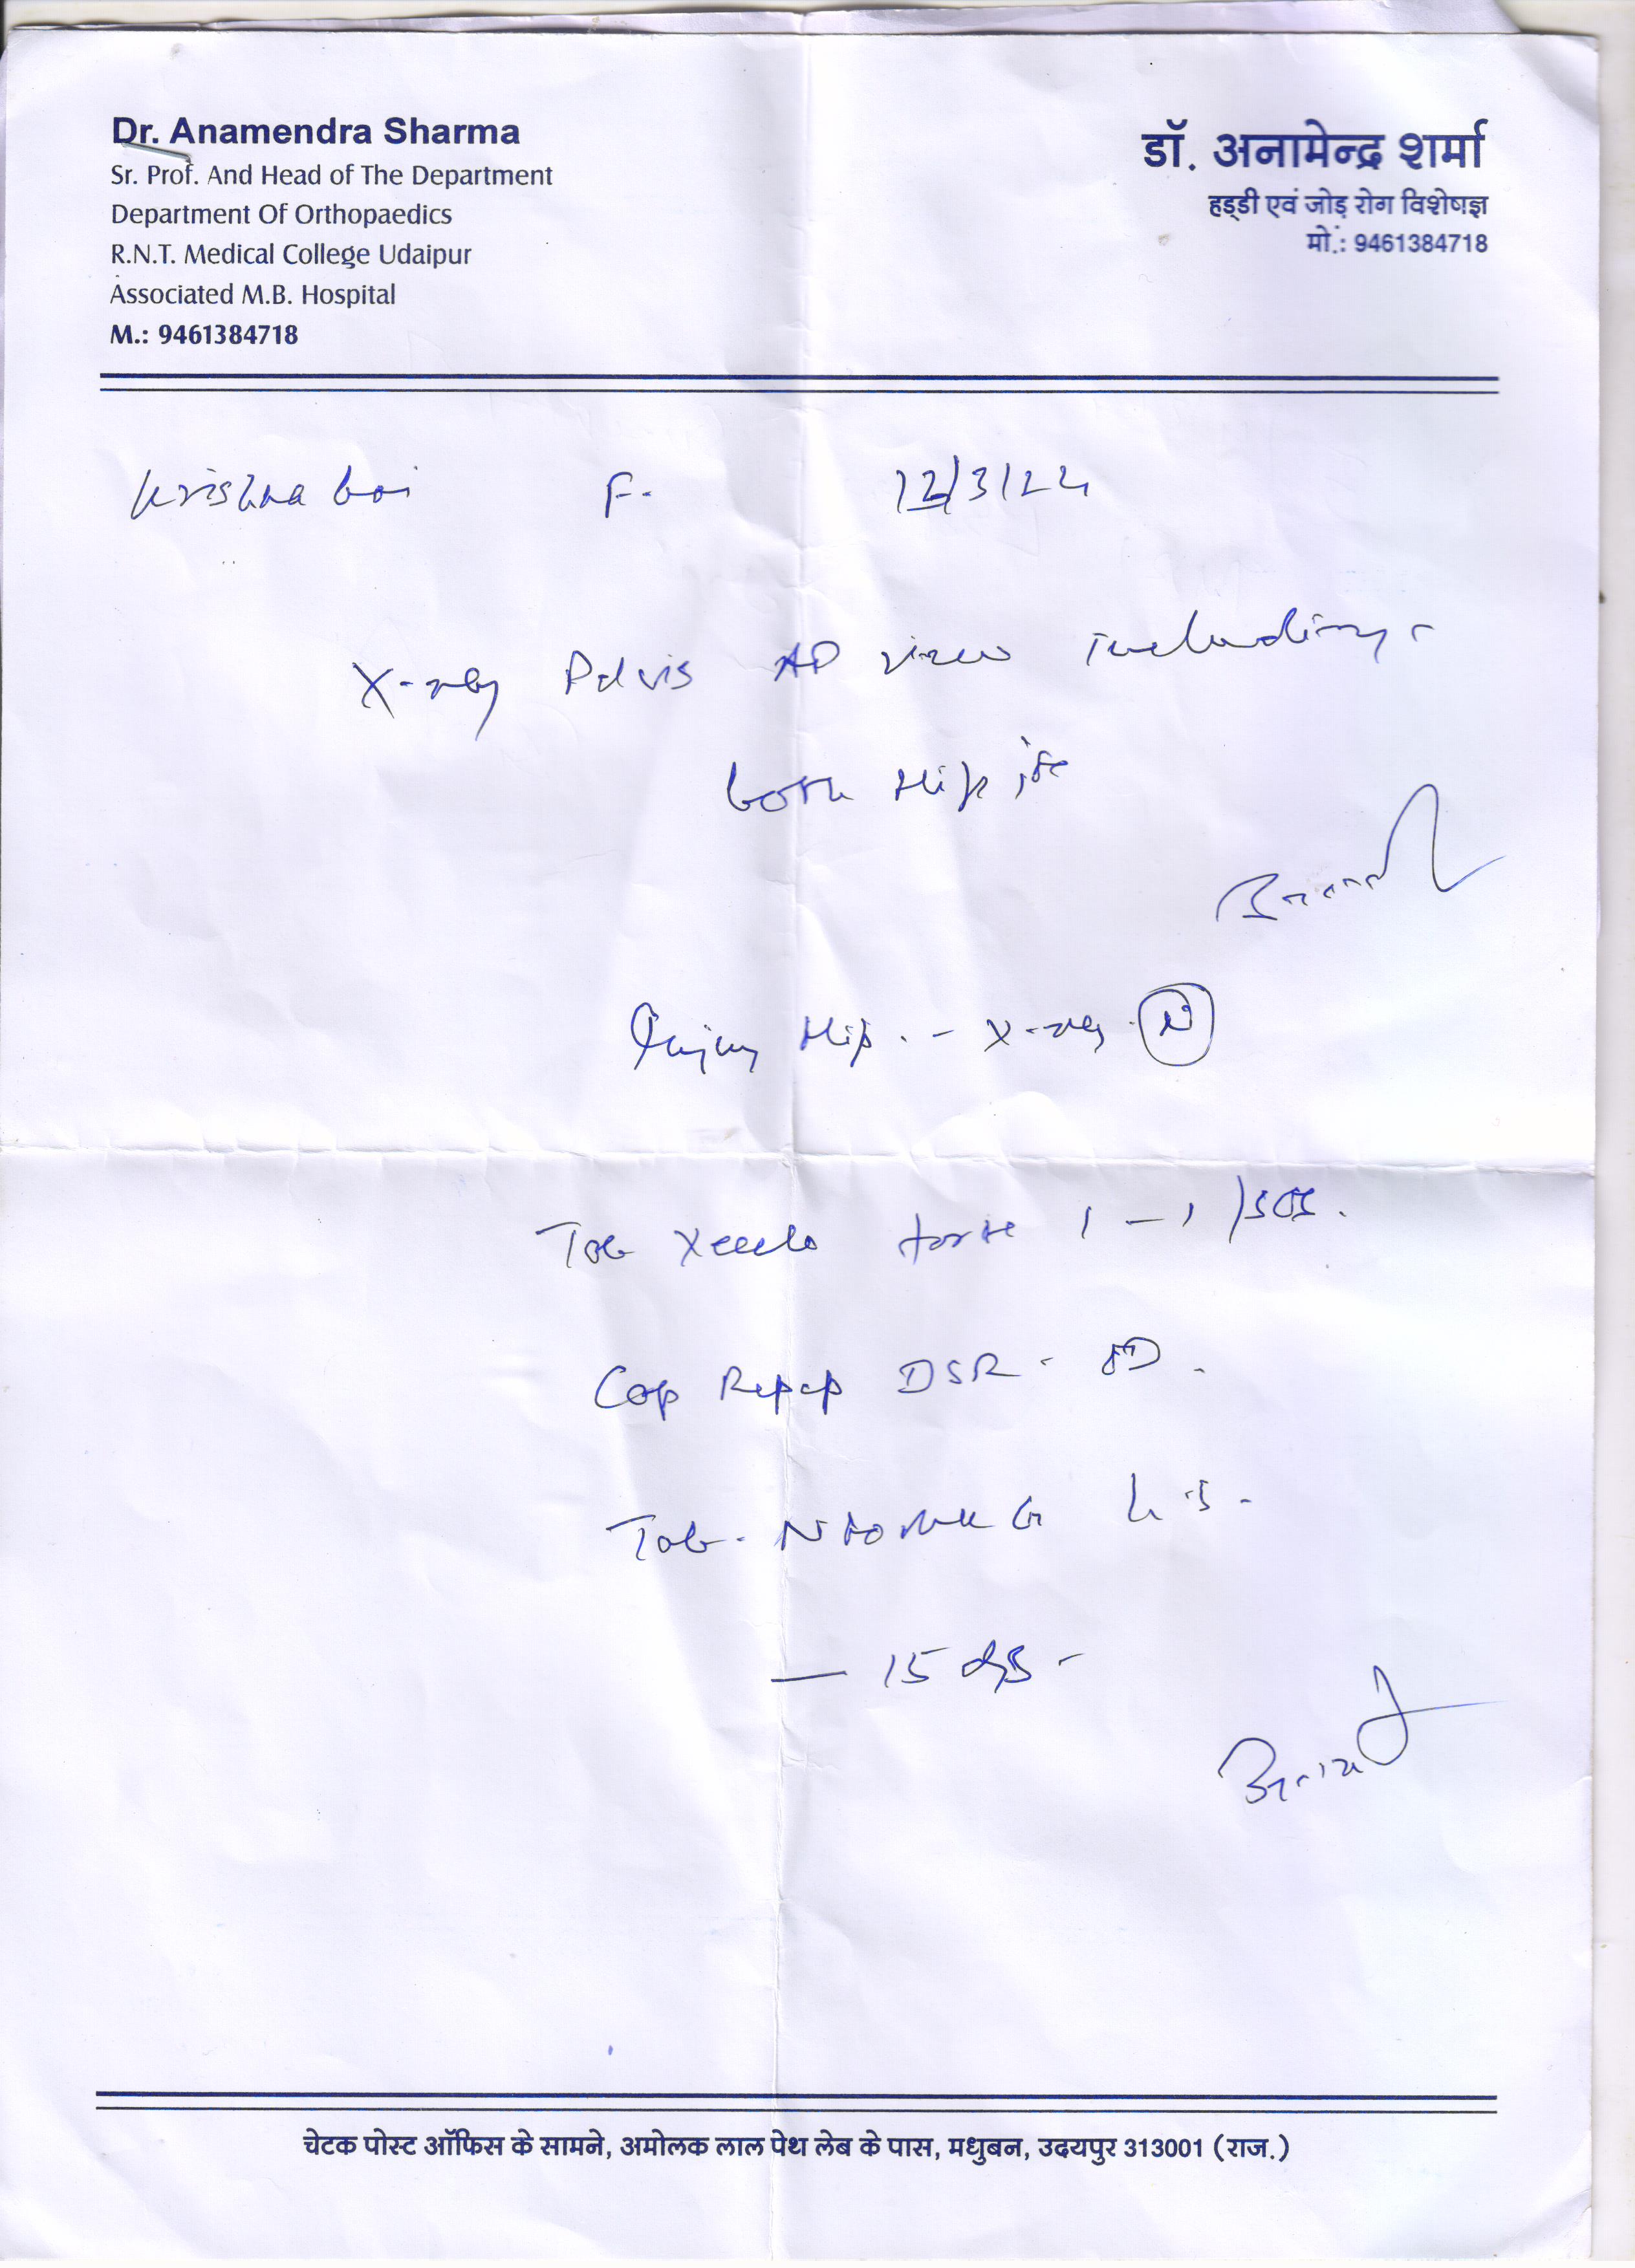 Dr. Anamendra Sharma
Sr. Prof. And Head of The Department
Department Of Orthopaedics
R.N.T. Medical College Udaipur
Associated M.B. Hospital
M.: 9461384718
डॉ. अनामेन्द्र शर्मा
हड्डी एवं जोड़ रोग विशेषज्ञ
मो.: 9461384718
Krishna bai F. 12/3/24
X-ray Pelvis AP view including
both Hip jts
Injury Hip. - X-ray N
Tab forte 1 - 1 /SOS.
Cap DSR - OD.
Tab. G h.s.
— 15 dys -
चेटक पोस्ट ऑफिस के सामने, अमोलक लाल पेथ लेब के पास, मधुबन, उदयपुर 313001 (राज.)